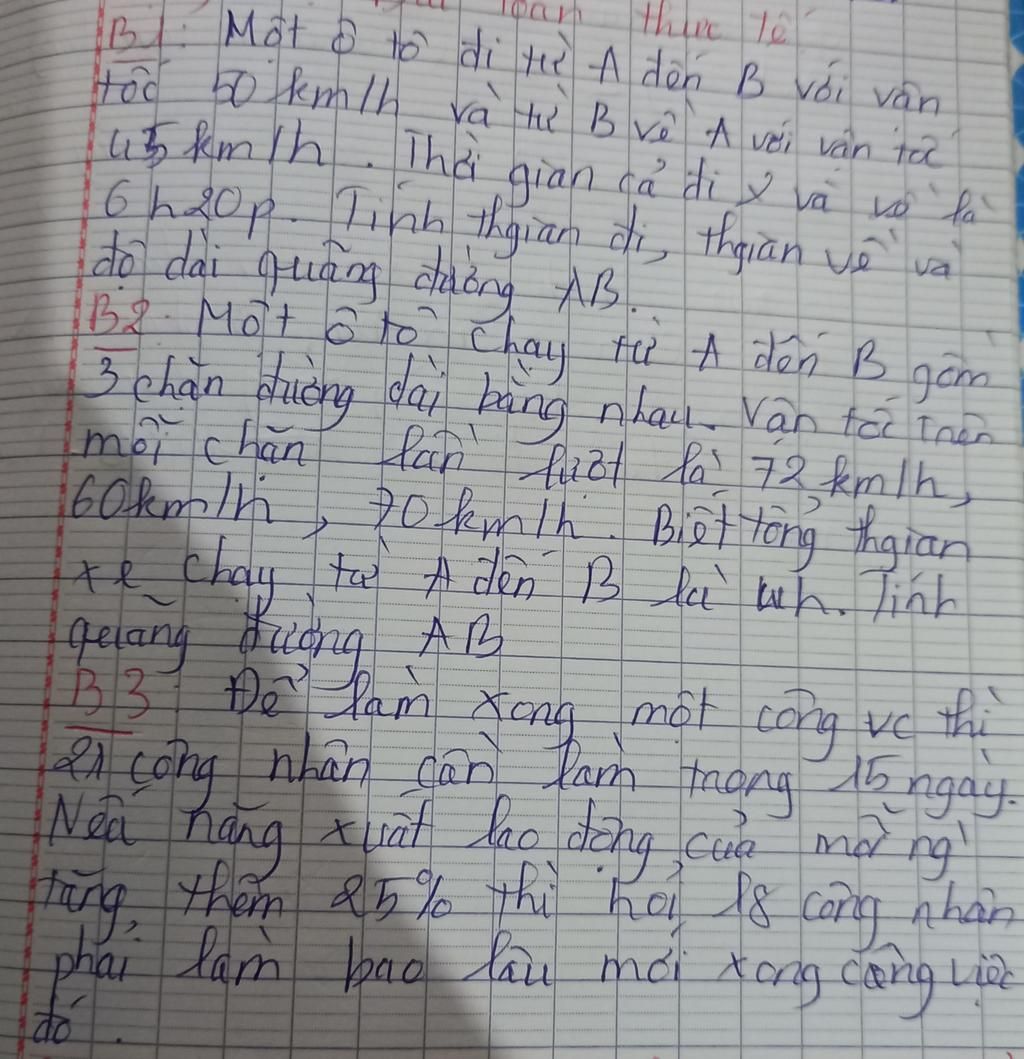 toán thực tế
B1: Một ô tô đi từ A đến B với vân
tốc 50 km/h và từ B về A với vận tốc
45 km/h. Thời gian cả đi và về là
6h20p. Tính thgian đi, thgian về và
độ dài quãng đường AB.
B2. Một ô tô chạy từ A đến B gồm
3 chặn đường dài bằng nhau. Vận tốc trên
mỗi chặn lần lượt là 72 km/h,
60km/h, 70km/h. Biết tổng thgian
xe chạy từ A đến B là 4h. Tính
quãng đường AB
B3: Để làm xong một công vc thì
21 công nhân cần làm trong 15 ngày.
Nếu năng xuất lao động của mỗi ng'
tăng thêm 25% thì hỏi 18 công nhân
phải làm bao lâu mới xong công việc
đó.